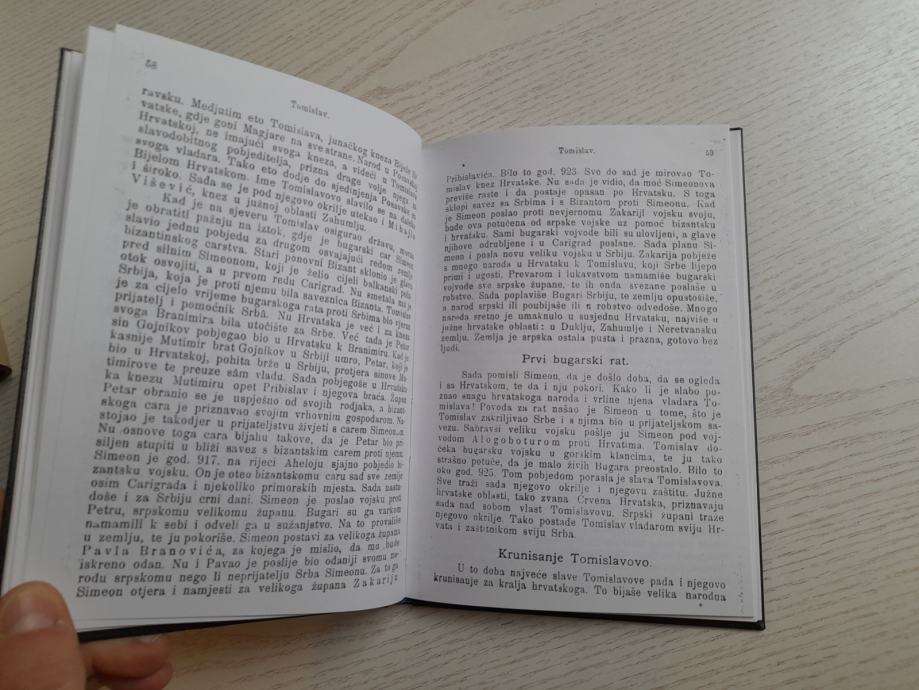 58
Tomislav.
ravsku. Medjutim eto Tomislava, junačkog kneza Bijele Hr-
vatske, gdje goni Magjare na sve strane. Narod u Posavskoj
Hrvatskoj, ne imajući svoga kneza, a videći u Tomislavu
slavodobitnog pobjeditelja, prizna drage volje njega za
svoga vladara. Tako eto dodje do sjedinjenja Posavske s
Bijelom Hrvatskom. Ime Tomislavovo slavilo se na daleko
i široko. Sada se je pod njegovo okrilje utekao i Mihajlo
Višević, knez u južnoj oblasti Zahumlju.
Kad je na sjeveru Tomislav osigurao državu, morao
je obratiti pažnju na iztok, gdje je bugarski car Simeon
slavio jednu pobjedu za drugom osvajajući redom zemlje
bizantinskog carstva. Stari ponovni Bizant sklonio je glavu
pred silnim Simeonom, koji je želio cijeli balkanski polu-
otok osvojiti, a u prvom redu Carigrad. Nu smetala mu je
Srbija, koja je proti njemu bila saveznica Bizanta. Tomislav
je za cijelo vrijeme bugarskoga rata proti Srbima bio vjeran
prijatelj i pomoćnik Srbâ. Nu Hrvatska je već i za kneza
svoga Branimira bila utočište za Srbe. Već tada je Petar
sin Gojnikov pobjegao bio u Hrvatsku k Branimiru. Kad je
kasnije Mutimir brat Gojnikov u Srbiji umro, Petar, koji je
bio u Hrvatskoj, pohita brže u Srbiju, protjera sinove Mu-
timirove te preuze sâm vladu. Sada pobjegoše u Hrvatsku
ka knezu Mutimiru opet Pribislav i njegova braća. Župan
Petar obranio se je uspješno od svojih rodjaka, a bizant-
skoga cara je priznavao svojim vrhovnim gospodarom. Na-
stojao je takodjer u prijateljstvu živjeti s carem Simeonom.
Nu osnove toga cara bijahu takove, da je Petar bio pri-
siljen stupiti u bliži savez s bizantskim carem proti njemu.
Simeon je god. 917. na rijeci Aheloju sjajno pobjedio bi-
zantsku vojsku. On je oteo bizantskomu caru sad sve zemlje
osim Carigrada i njekoliko primorskih mjesta. Sada nasta-
doše i za Srbiju crni dani. Simeon je poslao vojsku proti
Petru, srpskomu velikomu županu. Bugari su ga varkom
namamili k sebi i odveli ga u sužanjstvo. Na to provališe
u zemlju, te ju pokoriše. Simeon postavi za velikoga župana
Pavla Branovića, za kojega je mislio, da mu bude
iskreno odan. Nu i Pavao je poslije bio odaniji svomu na-
rodu srpskomu nego li neprijatelju Srba Simeonu. Za to ga
Simeon otjera i namjesti za velikoga župana Zakariju
Tomislav.
59
Pribislavića. Bilo to god. 923 Sve do sad je mirovao To-
mislav knez Hrvatske. Nu sada je vidio, da moć Simeonova
previše raste i da postaje opasan po Hrvatsku. S toga
sklopi savez sa Srbima i s Bizantom proti Simeonu. Kad
je Simeon poslao proti nevjernomu Zakariji vojsku svoju,
bude ova potučena od srpske vojske uz pomoć bizantsku
i hrvatsku. Sami bugarski vojvode bili su ulovljeni, a glave
njihove odrubljene i u Carigrad poslane. Sada planu Si-
meon i posla novu veliku vojsku u Srbiju. Zakarija pobježe
s mnogo naroda u Hrvatsku k Tomislavu, koji Srbe lijepo
primi i ugosti. Prevarom i lukavstvom namamiše bugarski
vojvode sve srpske župane, te ih onda svezane poslaše u
robstvo. Sada poplaviše Bugari Srbiju, te zemlju opustošiše,
a narod srpski ili poubijaše ili u robstvo odvedoše. Mnogo
naroda sretno je umaknulo u susjednu Hrvatsku, najviše u
južne hrvatske oblasti: u Duklju, Zahumlje i Neretvansku
zemlju. Zemlja je srpska ostala pusta i prazna, gotovo bez
ljudi.
Prvi bugarski rat.
Sada pomisli Simeon, da je došlo doba, da se ogleda
i sa Hrvatskom, te da i nju pokori. Kako li je slabo po-
znao snagu hrvatskoga naroda i vrline njena vladara To-
mislava! Povoda za rat našao je Simeon u tome, što je
Tomislav zakriljivao Srbe i s njima bio u prijateljskom sa-
vezu. Sabravši veliku vojsku pošlje ju Simeon pod voj-
vodom Alogoboturom proti Hrvatima. Tomislav do-
čeka bugarsku vojsku u gorskim klancima, te ju tako
strašno potuče, da je malo živih Bugara preostalo. Bilo to
oko god. 925. Tom pobjedom porasla je slava Tomislavova.
Sve traži sada njegovo okrilje i njegovu zaštitu. Južne
hrvatske oblasti, tako zvana Crvena Hrvatska, priznavaju
sada nad sobom vlast Tomislavovu. Srpski župani traže
njegovo okrilje. Tako postade Tomislav vladarom sviju Hr-
vata i zaštitnikom sviju Srba.
Krunisanje Tomislavovo.
U to doba najveće slave Tomislavove pada i njegovo
krunisanje za kralja hrvatskoga. To bijaše velika narodna